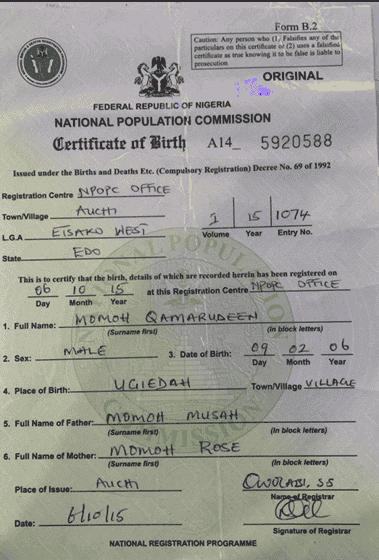 Form B.2
Caution: Any person who (1) Falsifies any of the
particulars on this certificate or (2) uses a falsified
certificate as true knowing it to be false is liable to
prosecution
ORIGINAL
FEDERAL REPUBLIC OF NIGERIA
NATIONAL POPULATION COMMISSION
Certificate of Birth A14_ 5920588
Issued under the Births and Deaths Etc. (Compulsory Registration) Decree No. 69 of 1992
Registration Centre NPOPC OFFICE
Town/Village AUCHI
L.G.A ETSAKO WEST
1 15 1074
Volume Year Entry No.
State EDO
This is to certify that the birth, details of which are recorded herein has been registered on
06 10 15 at this Registration Centre NPOPC OFFICE
Day Month Year
1. Full Name: MOMOH QAMARUDEEN
(Surname first) (in block letters)
2. Sex: MALE 3. Date of Birth: 09 02 06
Day Month Year
4. Place of Birth: UGIEDAH Town/Village VILLAGE
5. Full Name of Father: MOMOH MUSAH
(Surname first) (In block letters)
6. Full Name of Mother: MOMOH ROSE
(Surname first) (In block letters)
Place of Issue: AUCHI
Name of Registrar
Date: 6/10/15
Signature of Registrar
NATIONAL REGISTRATION PROGRAMME